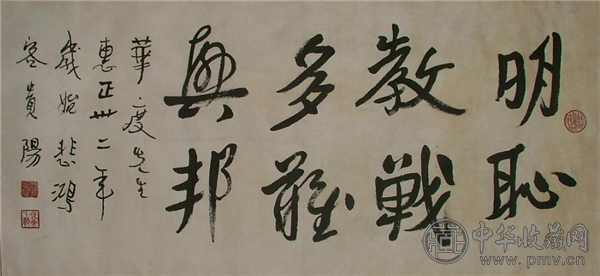 明恥
教戰
多難
興邦
華度先生
惠正卅二年
歲始悲鴻
客貴陽
中华收藏网
www.pmv.cn